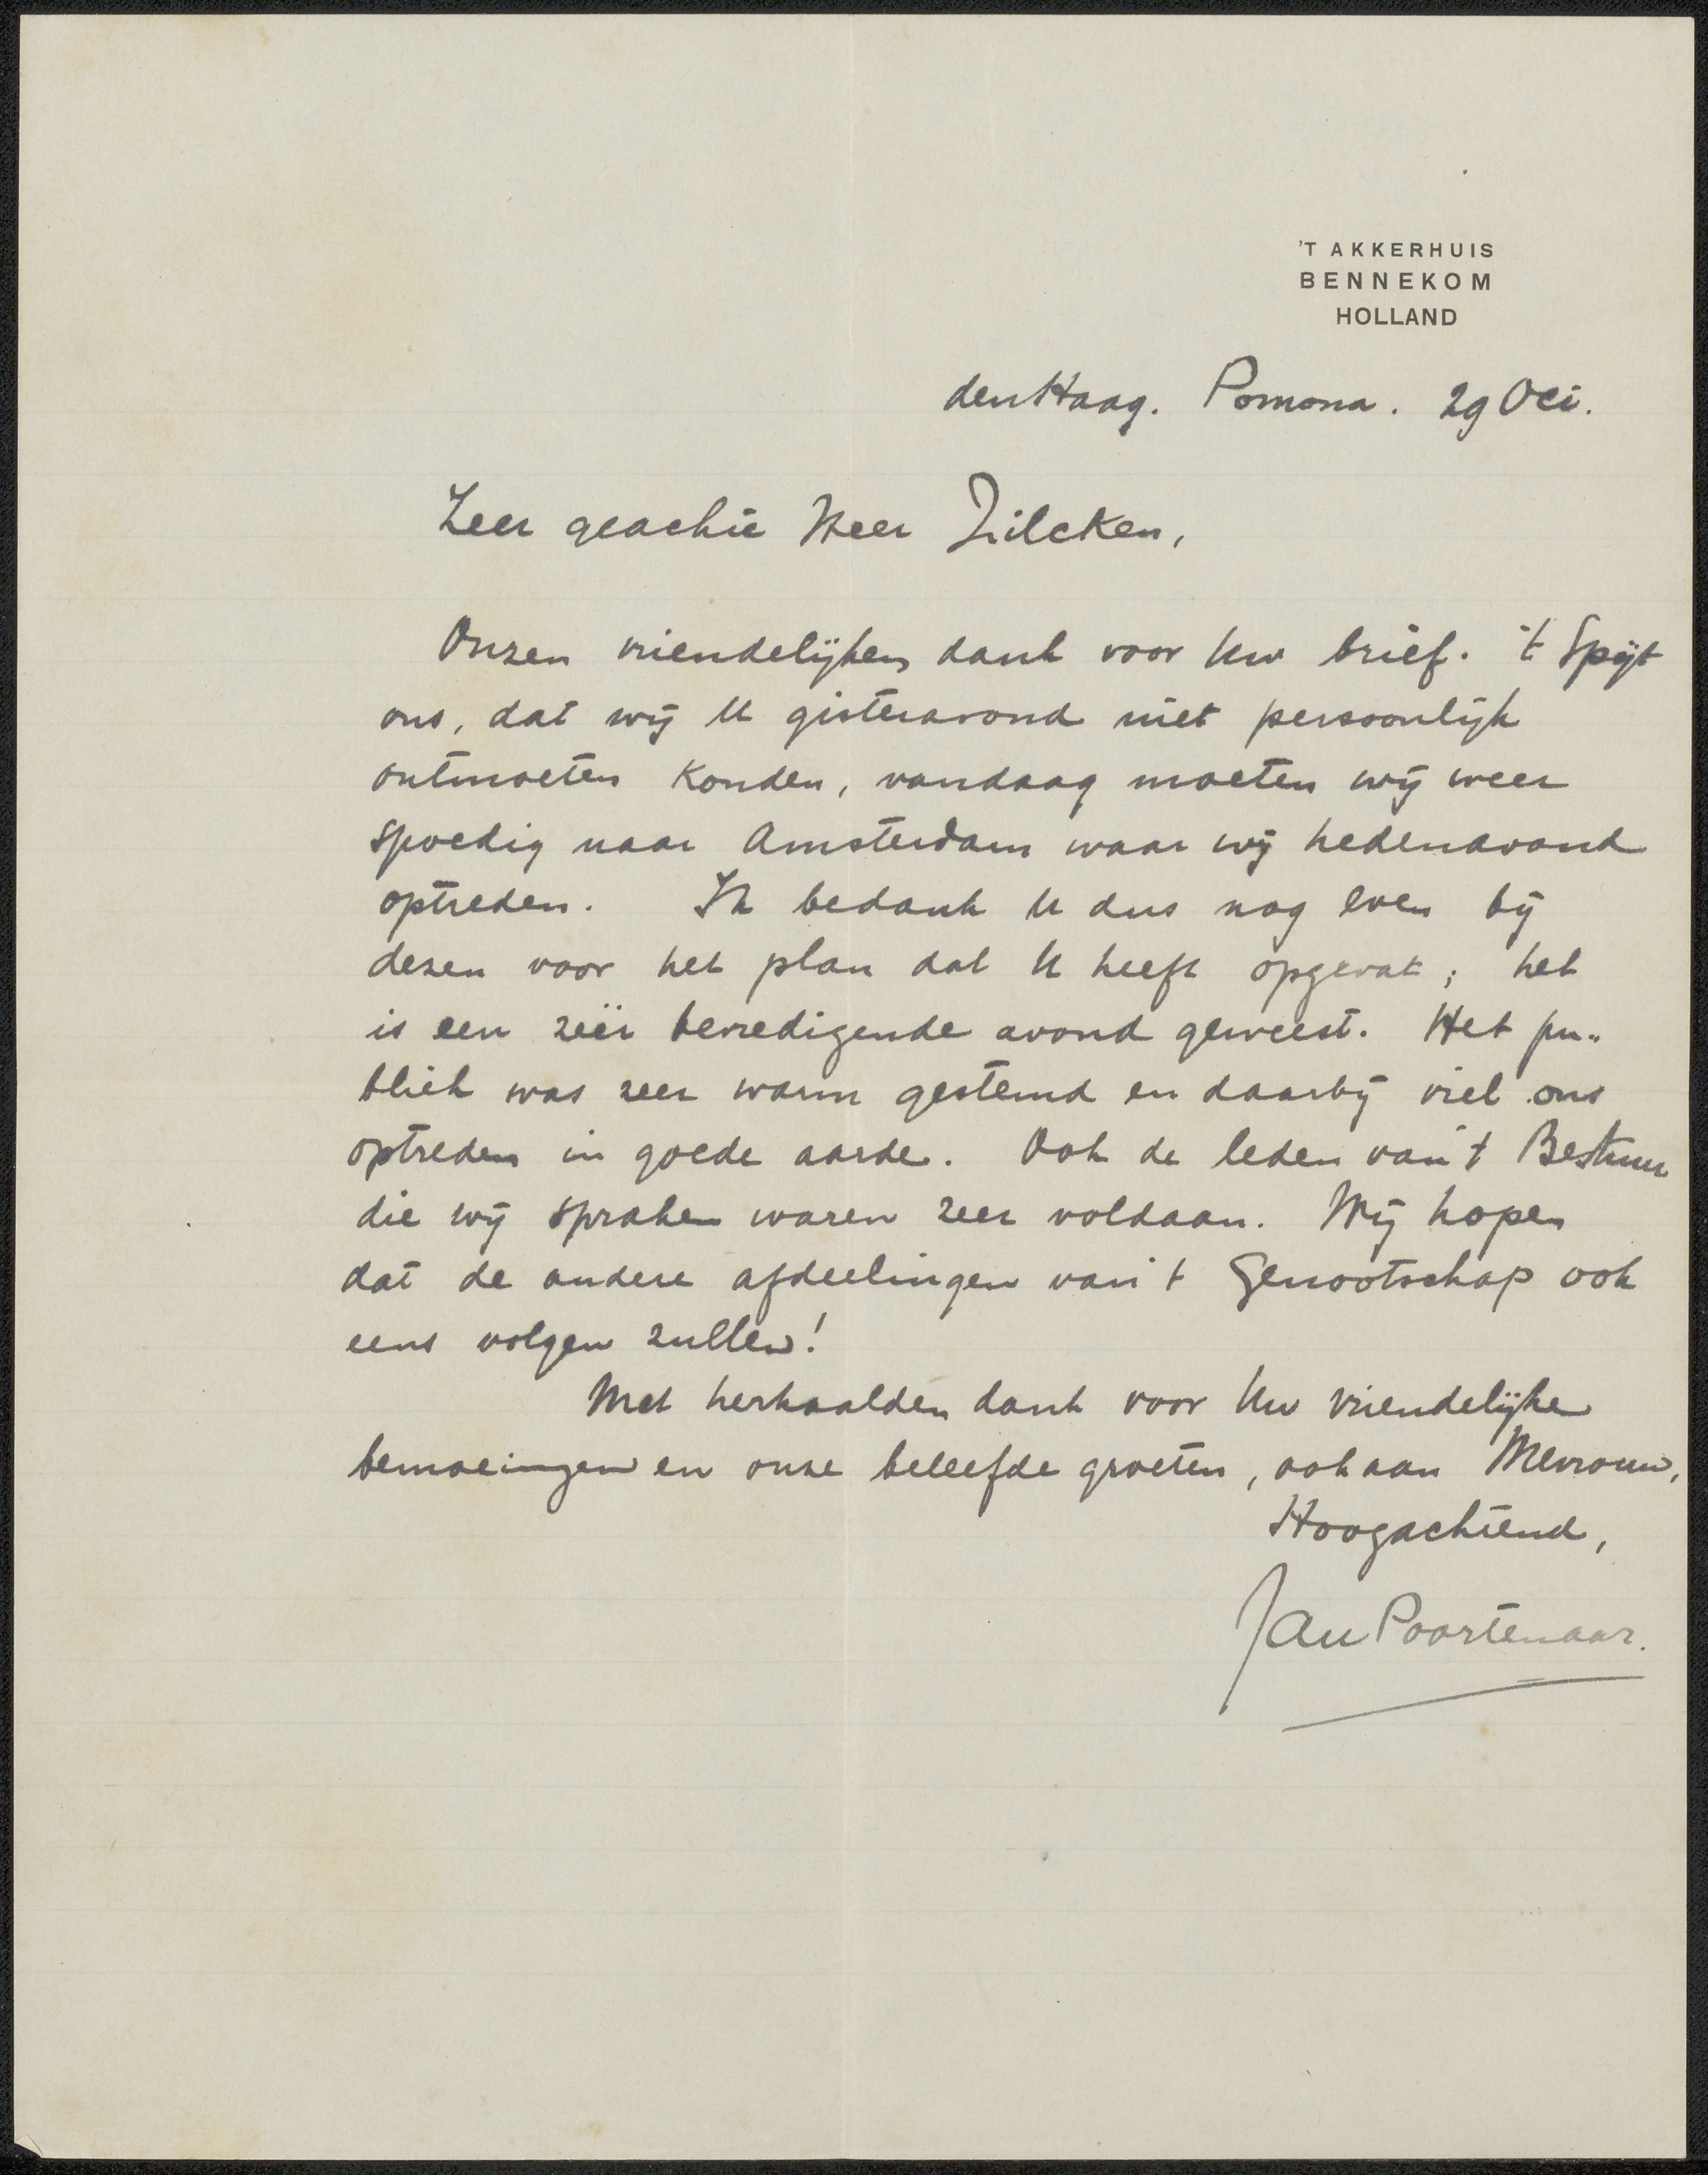 'T AKKERHUIS
BENNEKOM
HOLLAND
den Haag. Pomona. 29 Oct.
Zeer geachte Heer Zilcken,
Onzen vriendelijken dank voor Uw brief. 't Spijt
ons, dat wij U gisteravond niet persoonlijk
ontmoeten konden, vandaag moeten wij weer
spoedig naar Amsterdam waar wij hedenavond
optreden. Ik bedank U dus nog even bij
dezen voor het plan dat U heeft opgevat; het
is een zéér bevredigende avond geweest. Het pu-
bliek was zeer warm gestemd en daarbij viel ons
optreden in goede aarde. Ook de leden van 't Bestuur
die wij spraken waren zeer voldaan. Wij hopen
dat de andere afdeelingen van 't Genootschap ook
eens volgen zullen!
Met herhaalden dank voor Uw vriendelijke
bemoeiingen en onze beleefde groeten, ook aan Mevrouw,
Hoogachtend,
Jan Poortenaar.